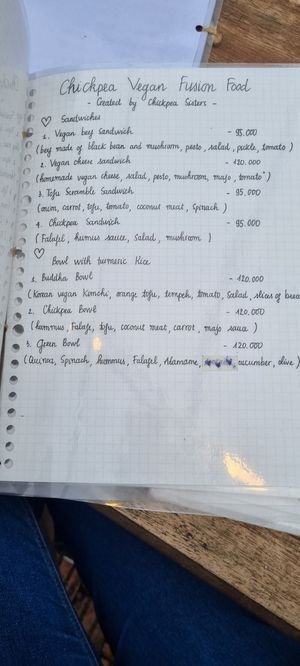 Chickpea Vegan Fusion Food
- Created by Chickpea Sisters -
♡ Sandwiches
1. Vegan beef Sandwich - 95.000
(beef made of black bean and mushroom, pesto, salad, pickle, tomato)
2. Vegan cheese sandwich - 120.000
(homemade vegan cheese, salad, pesto, mushroom, mayo, tomato)
3. Tofu Scramble Sandwich - 95.000
(onion, carrot, tofu, tomato, coconut meat, Spinach)
4. Chickpea Sandwich - 95.000
(Falafel, humus sauce, Salad, mushroom)
♡ Bowl with turmeric Rice
1. Buddha Bowl - 120.000
(Korean vegan Kimchi, orange tofu, tempeh, tomato, Salad, slices of bread
2. Chickpea Bowl - 120.000
(hummus, Falafel, tofu, coconut meat, carrot, mayo sauce)
3. Green Bowl - 120.000
(Quinoa, Spinach, hummus, Falafel, Adamame, cucumber, olive)